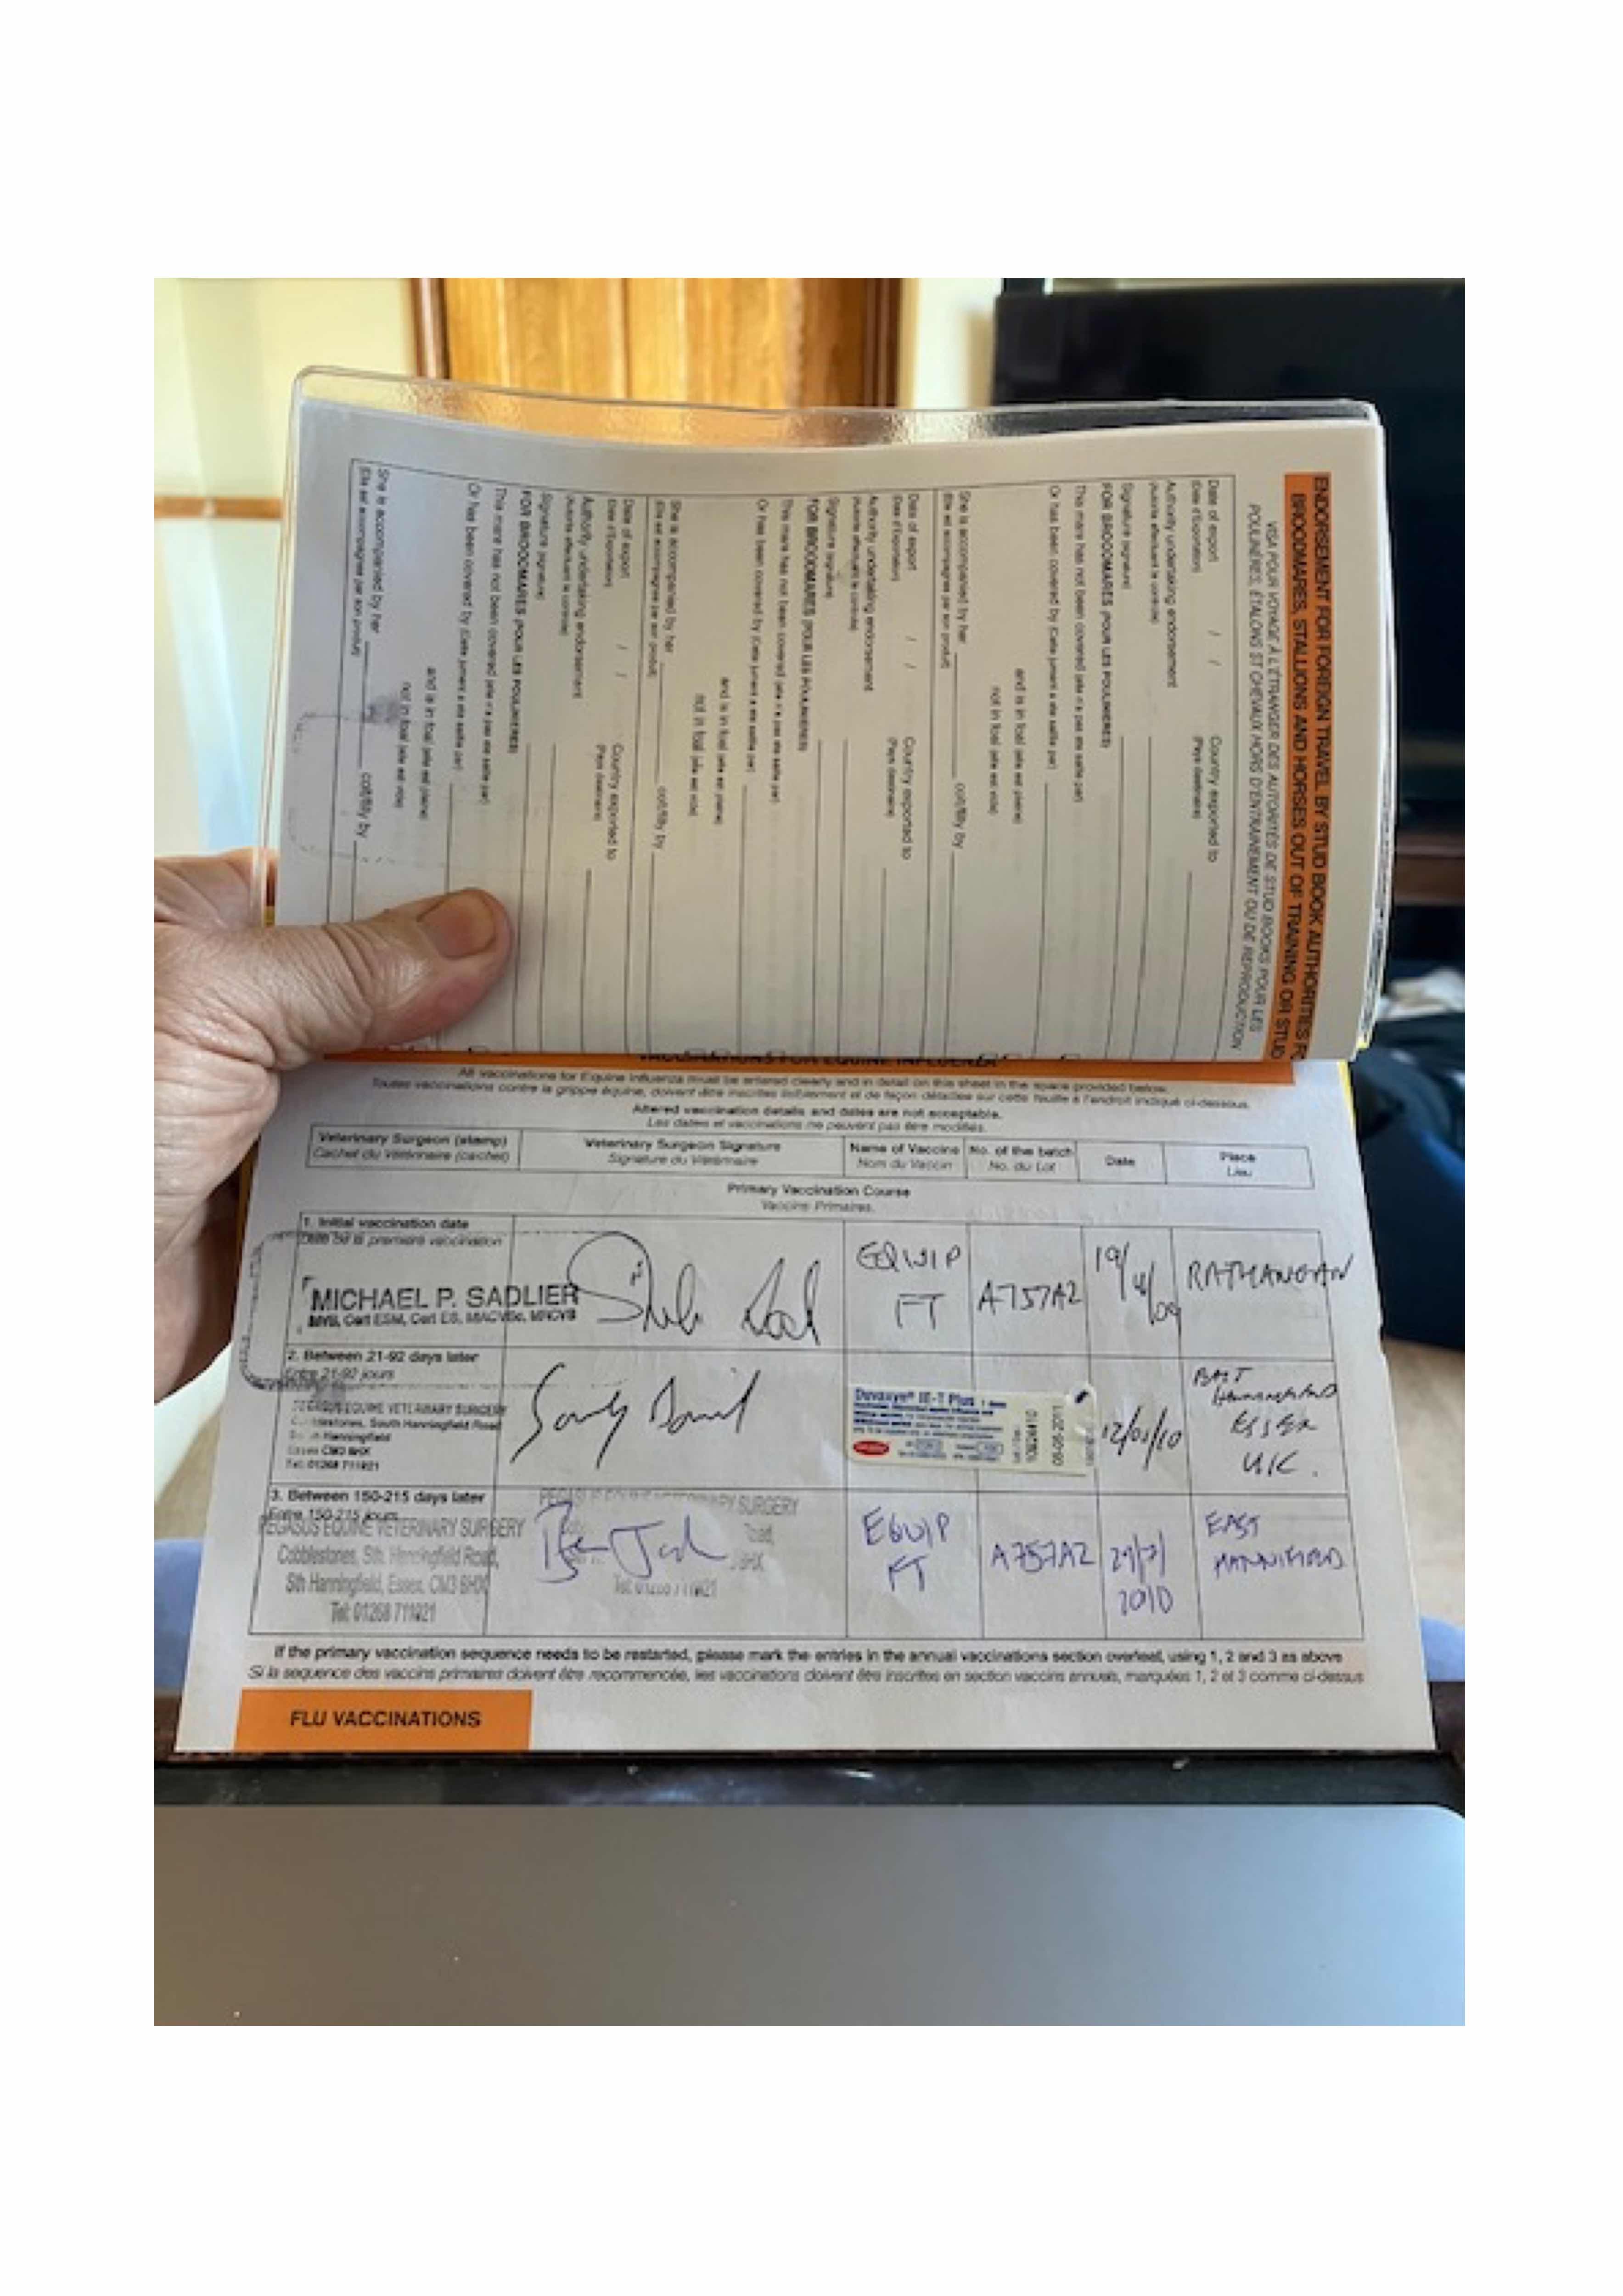 ENDORSEMENT FOR FOREIGN TRAVEL BY STUD BOOK AUTHORITIES
BROODMARES, STALLIONS AND HORSES OUT OF TRAINING OR STUD
VISA POUR VOYAGE À L'ÉTRANGER DES AUTORITÉS DE STUD BOOKS POUR LES
POULINÈRES, ÉTALONS ST CHEVAUX HORS D'ENTRAINEMENT OU DE REPRODUCTION
Date of export / / Country exported to
(Date d'Exportation) (Pays destinaire)
Authority undertaking endorsement
(Autorite effectuant le controle)
Signature (signature)
FOR BROODMARES (POUR LES POULINIERES)
This mare has not been covered (elle n'a pas ete saillie par)
Or has been covered by (Cette jument a ete saillie par)
and is in foal (elle est pleine)
not in foal (elle est vide)
She is accompanied by her colt/filly by
(Elle est accompagnee par son produit)
Date of export / / Country exported to
(Date d'Exportation) (Pays destinaire)
Authority undertaking endorsement
(Autorite effectuant le controle)
Signature (signature)
FOR BROODMARES (POUR LES POULINIERES)
This mare has not been covered (elle n'a pas ete saillie par)
Or has been covered by (Cette jument a ete saillie par)
and is in foal (elle est pleine)
not in foal (elle est vide)
She is accompanied by her colt/filly by
(Elle est accompagnee par son produit)
Date of export / / Country exported to
(Date d'Exportation) (Pays destinaire)
Authority undertaking endorsement
(Autorite effectuant le controle)
Signature (signature)
FOR BROODMARES (POUR LES POULINIERES)
This mare has not been covered (elle n'a pas ete saillie par)
Or has been covered by (Cette jument a ete saillie par)
and is in foal (elle est pleine)
not in foal (elle est vide)
She is accompanied by her colt/filly by
(Elle est accompagnee par son produit)
VACCINATIONS FOR EQUINE INFLUENZA
All vaccinations for Equine Influenza must be entered clearly and in detail on this sheet in the space provided below.
Toutes vaccinations contre la grippe équine, doivent être inscrites lisiblement et de façon détaillée sur cette feuille à l'endroit indiqué ci-dessous.
Altered vaccination details and dates are not acceptable.
Les dates et vaccinations ne peuvent pas être modifiés.
Veterinary Surgeon (stamp) Veterinary Surgeon Signature Name of Vaccine No. of the batch Date Place
Cachet du Vétérinaire (cachet) Signature du Vétérinaire Nom du Vaccin No. du Lot Lieu
Primary Vaccination Course
Vaccins Primaires.
1. Initial vaccination date
Date de la première vaccination
MICHAEL P. SADLIER
MVB, Cert ESM, Cert ES, MACVSc, MRCVS
EQUIP FT A757A2 19/ /09 RATHANGAN
2. Between 21-92 days later
Entre 21-92 jours
PEGASUS EQUINE VETERINARY SURGERY
Cobblestones, South Hanningfield Road
Hanningfield
Essex CM3 8HX
Tel: 01268 711921
Duvaxyn® IE-T Plus
05-05-2011
12/01/10
EAST HANNINGFIELD
ESSEX
UK.
3. Between 150-215 days later
Entre 150-215 jours
PEGASUS EQUINE VETERINARY SURGERY
Cobblestones, Sth. Hanningfield Road,
Sth Hanningfield, Essex, CM3 8HX
Tel: 01268 711921
PEGASUS EQUINE VETERINARY SURGERY
Road,
8HX
Tel: 01268 711921
EQUIP FT A757A2 29/7/2010 EAST
If the primary vaccination sequence needs to be restarted, please mark the entries in the annual vaccinations section overleaf, using 1, 2 and 3 as above
Si la sequence des vaccins primaires doivent être recommencée, les vaccinations doivent être inscrites en section vaccins annuels, marquées 1, 2 et 3 comme ci-dessus
FLU VACCINATIONS